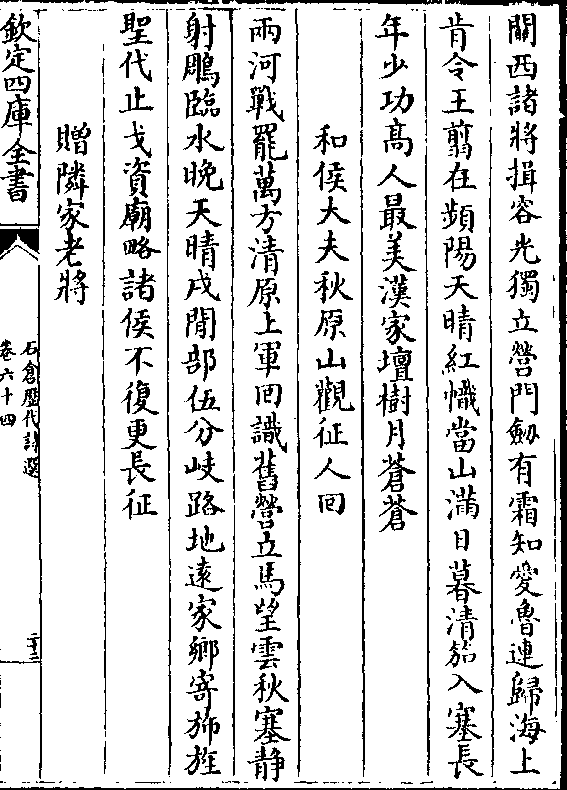 關西諸將揖容光獨立營門劒有霜知愛魯連歸海上
肯令王翦在頻陽天晴紅幟當山滿日暮清笳入塞長
年少功髙人最美漢家壇樹月蒼蒼
和侯大夫秋原山觀征人回
兩河戰罷萬方清原上軍回識舊營立馬望雲秋塞静
射鵰臨水晚天晴戍閒部伍分岐路地逺家鄉寄斾旌
聖代止戈資廟略諸侯不復更長征
贈隣家老將
欽定四庫全書
石倉歴代詩選
卷六十四
二十二